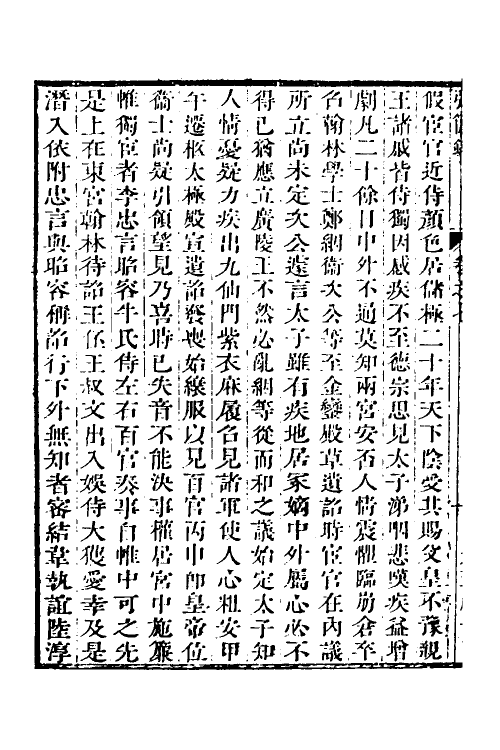 假宦官近侍顔色居儲極二十年天下陰受其賜文皇不豫親
王諸戚皆侍獨因感疾不至德宗思見太子涕咽悲嘆疾益增
劇凡二十餘日中外不通莫知兩宮安否人情震懼臨崩倉卒
召翰林學士鄭絪衞次公等至金鑾殿草遺詔時宦官在內議
所立尚未定次公遽言太子雖有疾地居冢嫡中外屬心必不
得已猶應立廣陵王不然必亂絪等從而和之議始定太子知
人情憂疑力疾出九仙門紫衣麻履召見諸軍使人心粗安甲
午遷柩太極殿宣遺詔發喪始縗服以見百官丙申卽皇帝位
衞士尚疑引領望見乃喜時已失音不能決事權居宮中施簾
帷獨宦者李忠言昭容牛氏侍左右百官奏事自帷中可之先
是上在東宮翰林待詔王伾王叔文出入娛侍大獲愛幸及是
潛入依附忠言與昭容稱詔行下外無知者密結韋執誼陸淳